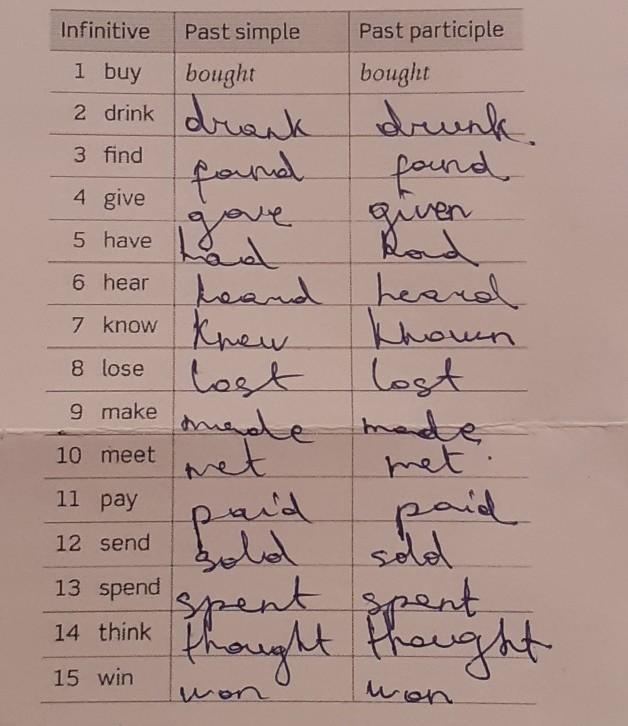 Infinitive Past simple Past participle
1 buy bought bought
2 drink drank drunk.
3 find found found
4 give gave given
5 have had had
6 hear heard heard
7 know knew known
8 lose lost lost
9 make made made
10 meet met met.
11 pay paid paid
12 send sold sold
13 spend spent spent
14 think thought thought
15 win won won